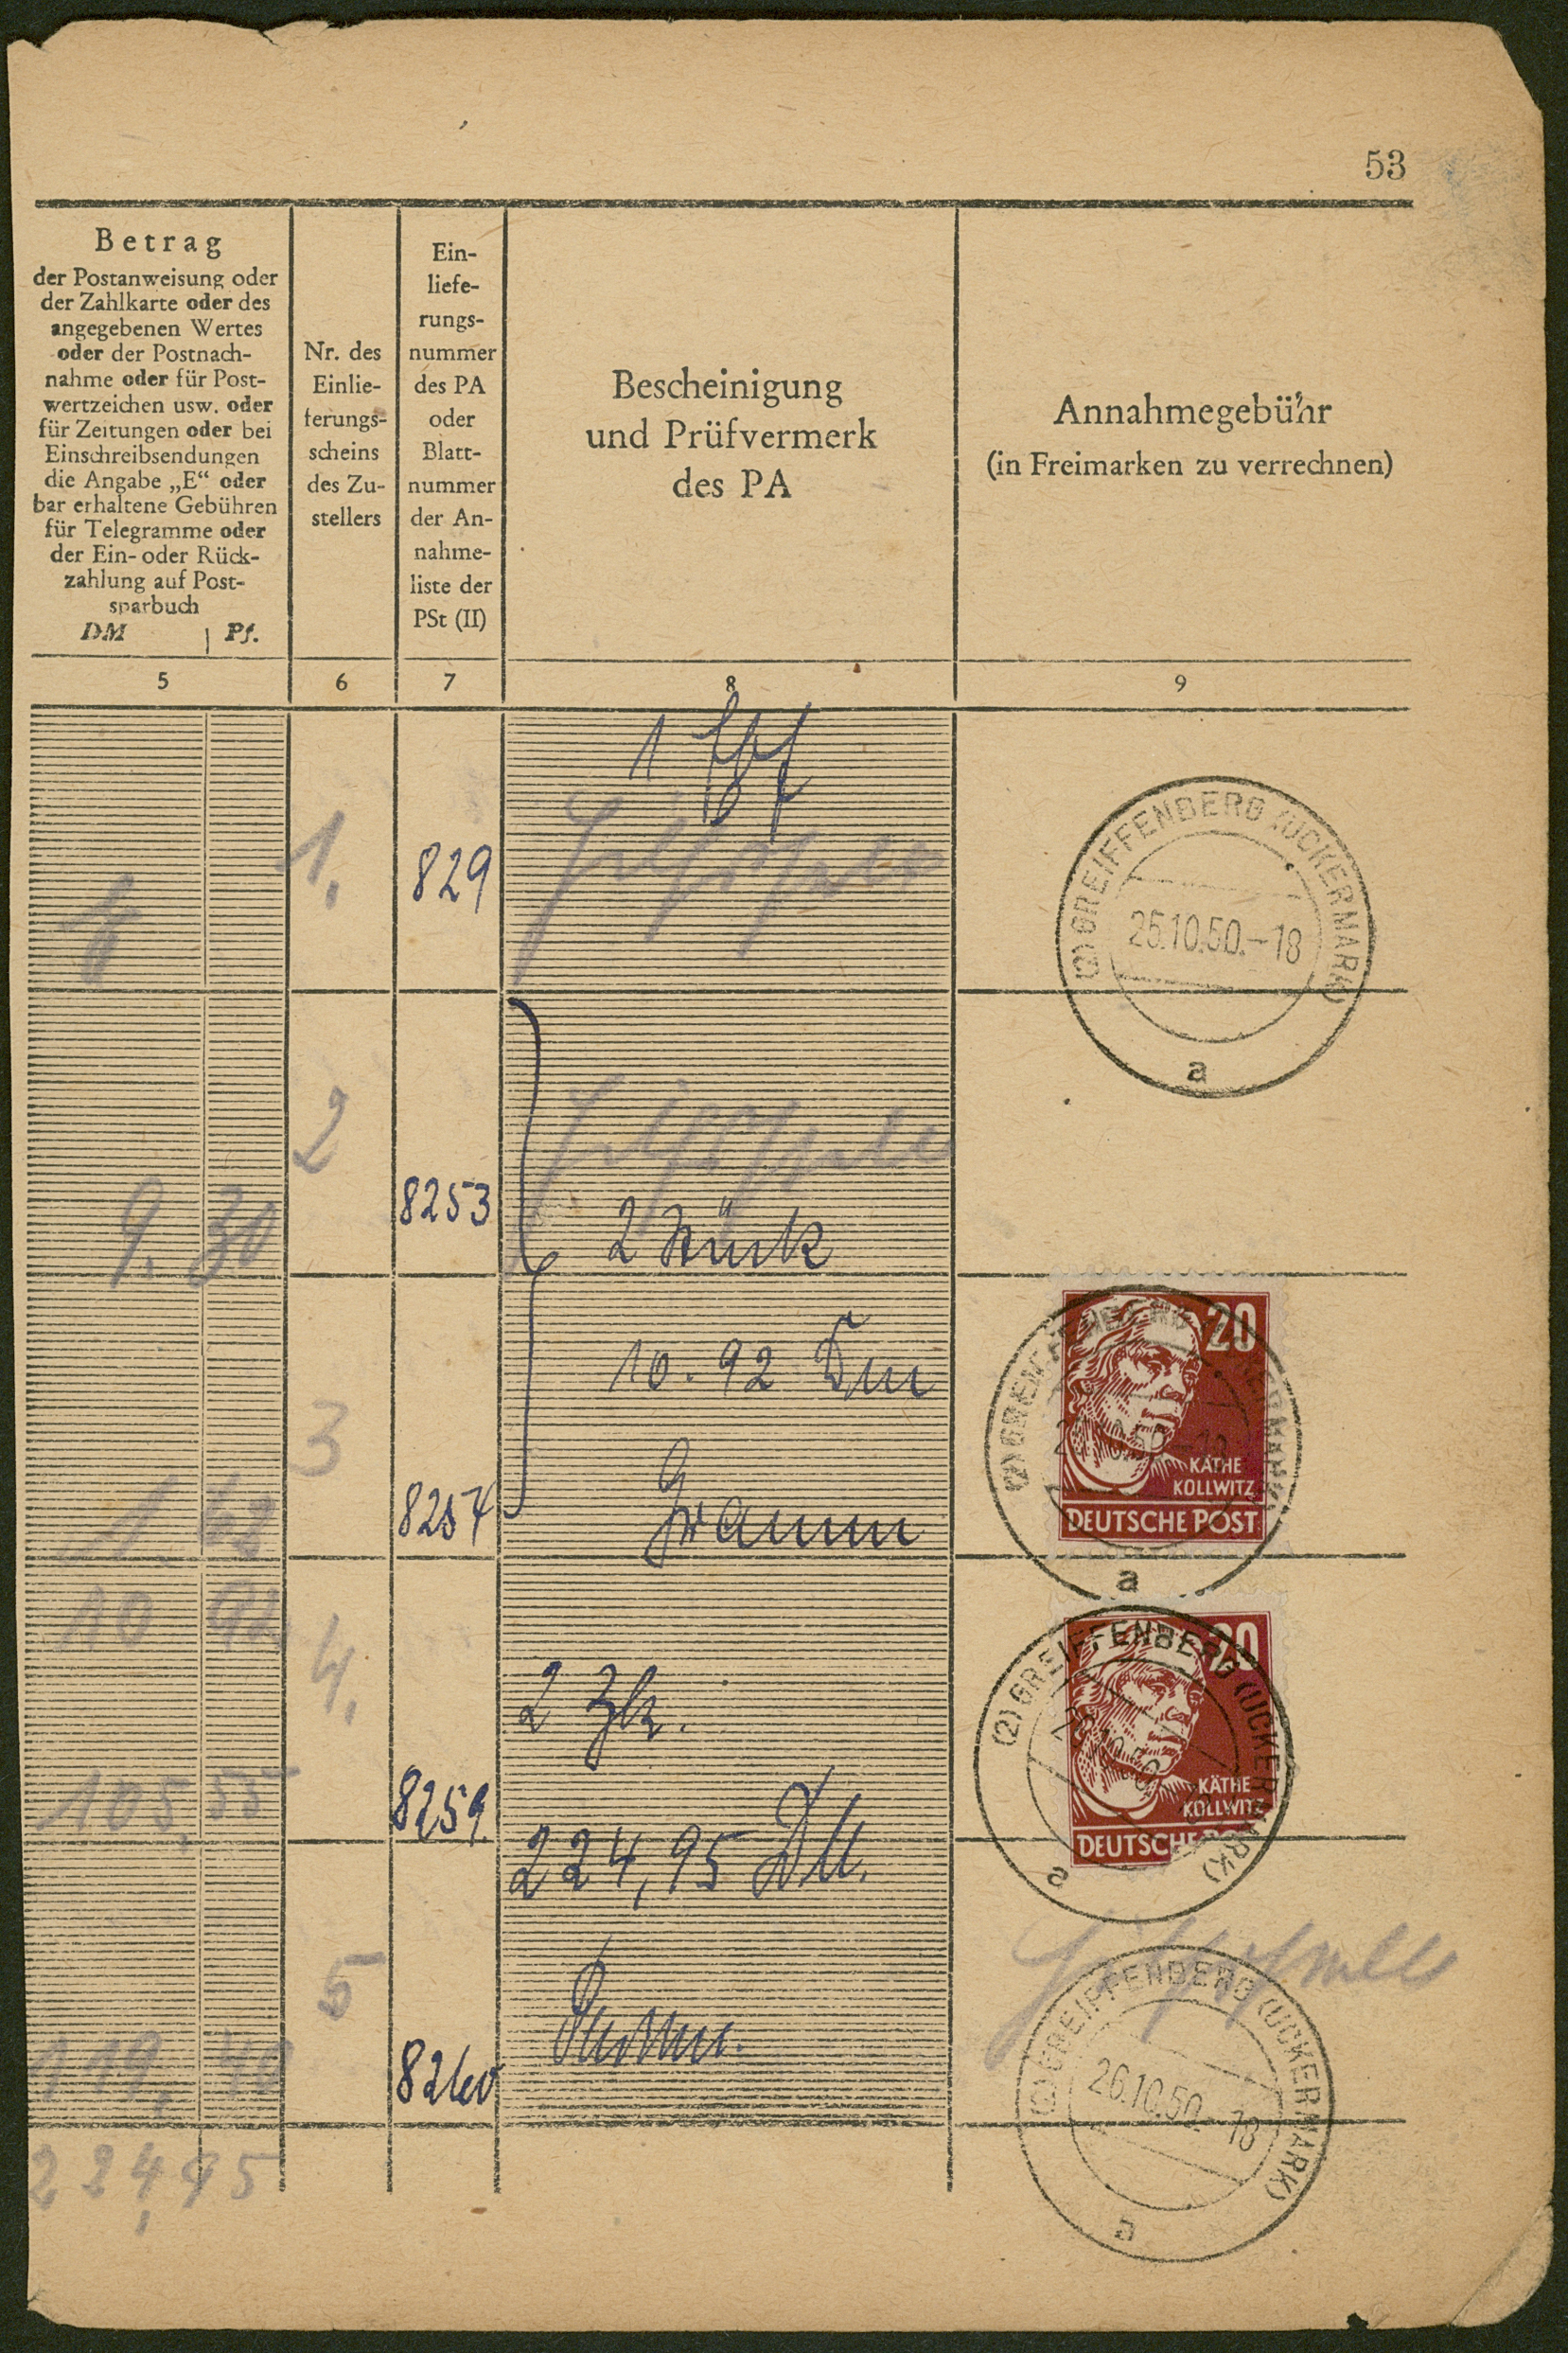 53
Betrag
der Postanweisung oder
der Zahlkarte oder des
angegebenen Wertes
oder der Postnach-
nahme oder für Post-
wertzeichen usw. oder
für Zeitungen oder bei
Einschreibsendungen
die Angabe „E“ oder
bar erhaltene Gebühren
für Telegramme oder
der Ein- oder Rück-
zahlung auf Post-
sparbuch
DM Pf.
Nr. des
Einlie-
ferungs-
scheins
des Zu-
stellers
Ein-
liefe-
rungs-
nummer
des PA
oder
Blatt-
nummer
der An-
nahme-
liste der
PSt (II)
Bescheinigung
und Prüfvermerk
des PA
Annahmegebühr
(in Freimarken zu verrechnen)
5 6 7 8 9
1
1. 829
(2) GREIFFENBERG (UCKERMARK)
25.10.50.-18
a
9. 30 2 8253
2 Stück
10.92 Dm
1. 62 3 8257
Gramm
20
KÄTHE
KOLLWITZ
DEUTSCHE POST
a
10 92
105,55 4. 8259
2 Zk.
224,95 DM.
20
KÄTHE
KOLLWITZ
DEUTSCHE
(2) GREIFFENBERG (UCKERMARK)
a
119,40 5 8260
(2) GREIFFENBERG (UCKERMARK)
26.10.50.-18
a
224,95